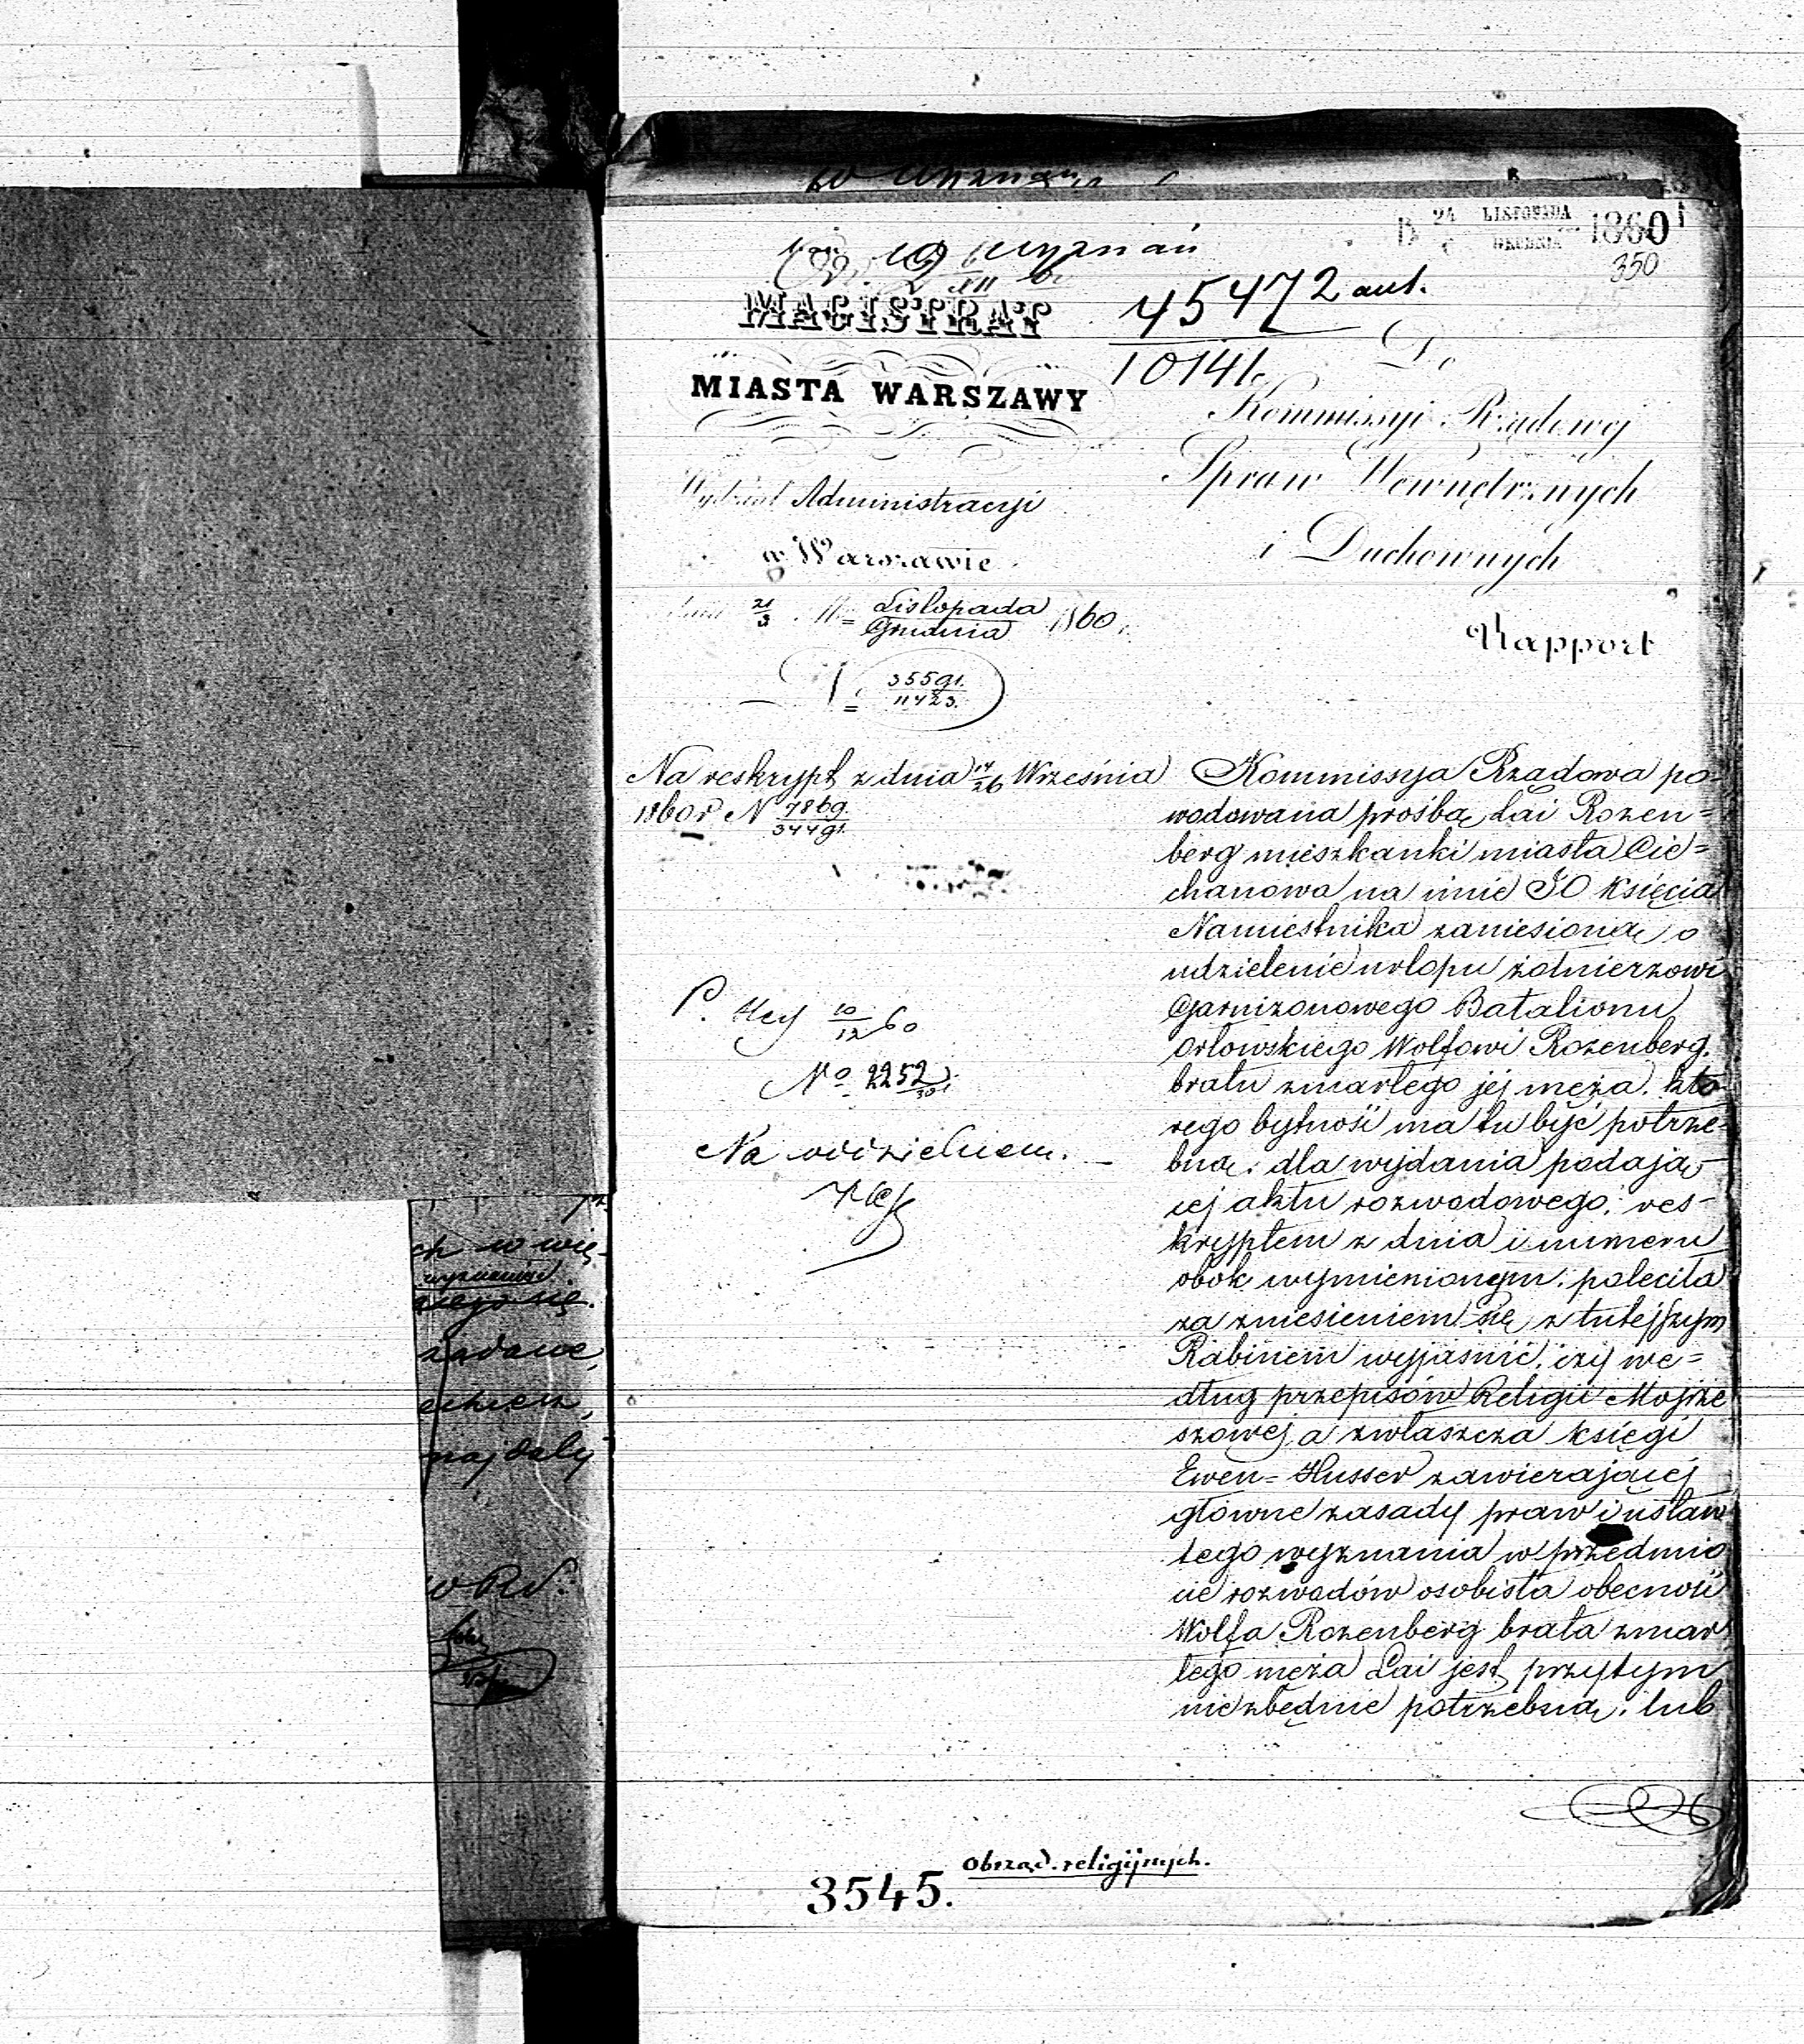 w wyznań
B 24 LISTOPADA 1860
6 GRUDNIA
350
w wyznań
45472 aut.
10141
MAGISTRAT
MIASTA WARSZAWY
Wydział Administracyi
w Warszawie
dnia 21/3 Listopada/Grudnia 1860
35591/11423
Do
Kommissyi Rządowej
Spraw Wewnętrznych
i Duchownych
Rapport
Na reskrypt z dnia 14/26 Września
1860 r N 7869/34491
P. Hey 10/12 60
No 2252
Na oddzielnem.
Hey
Kommissya Rządowa po-
wodowana prośbą Łai Rozen=
berg mieszkanki miasta Cie=
chanowa na imie JO księcia
Namiestnika zaniesioną o
udzielenie urlopu żołnierzowi
Garnizonowego Batalionu
Orłowskiego Wolfowi Rozenberg.
bratu zmarłego jej męża. któ-
rego bytność ma tu być potrze-
bną. dla wydania podają-
cej aktu rozwodowego. res-
kryptem z dnia i numeru
obok wymienionym. poleciła
za zniesieniem się z tutejszym
Rabinem wyjaśnić. czy we=
dług przepisów Religii Mojże
szowej a zwłaszcza księgi
Ewen=Husser zawierającej
główne zasady praw i ustaw
tego wyznania w przedmio
cie rozwodów osobista obecność
Wolfa Rozenberg brata zmar
łego męża Łai jest przytym
niezbędnie potrzebną. lub
ch w wię-
żądowe,
naj daly
3545.
obrząd. religijnych.